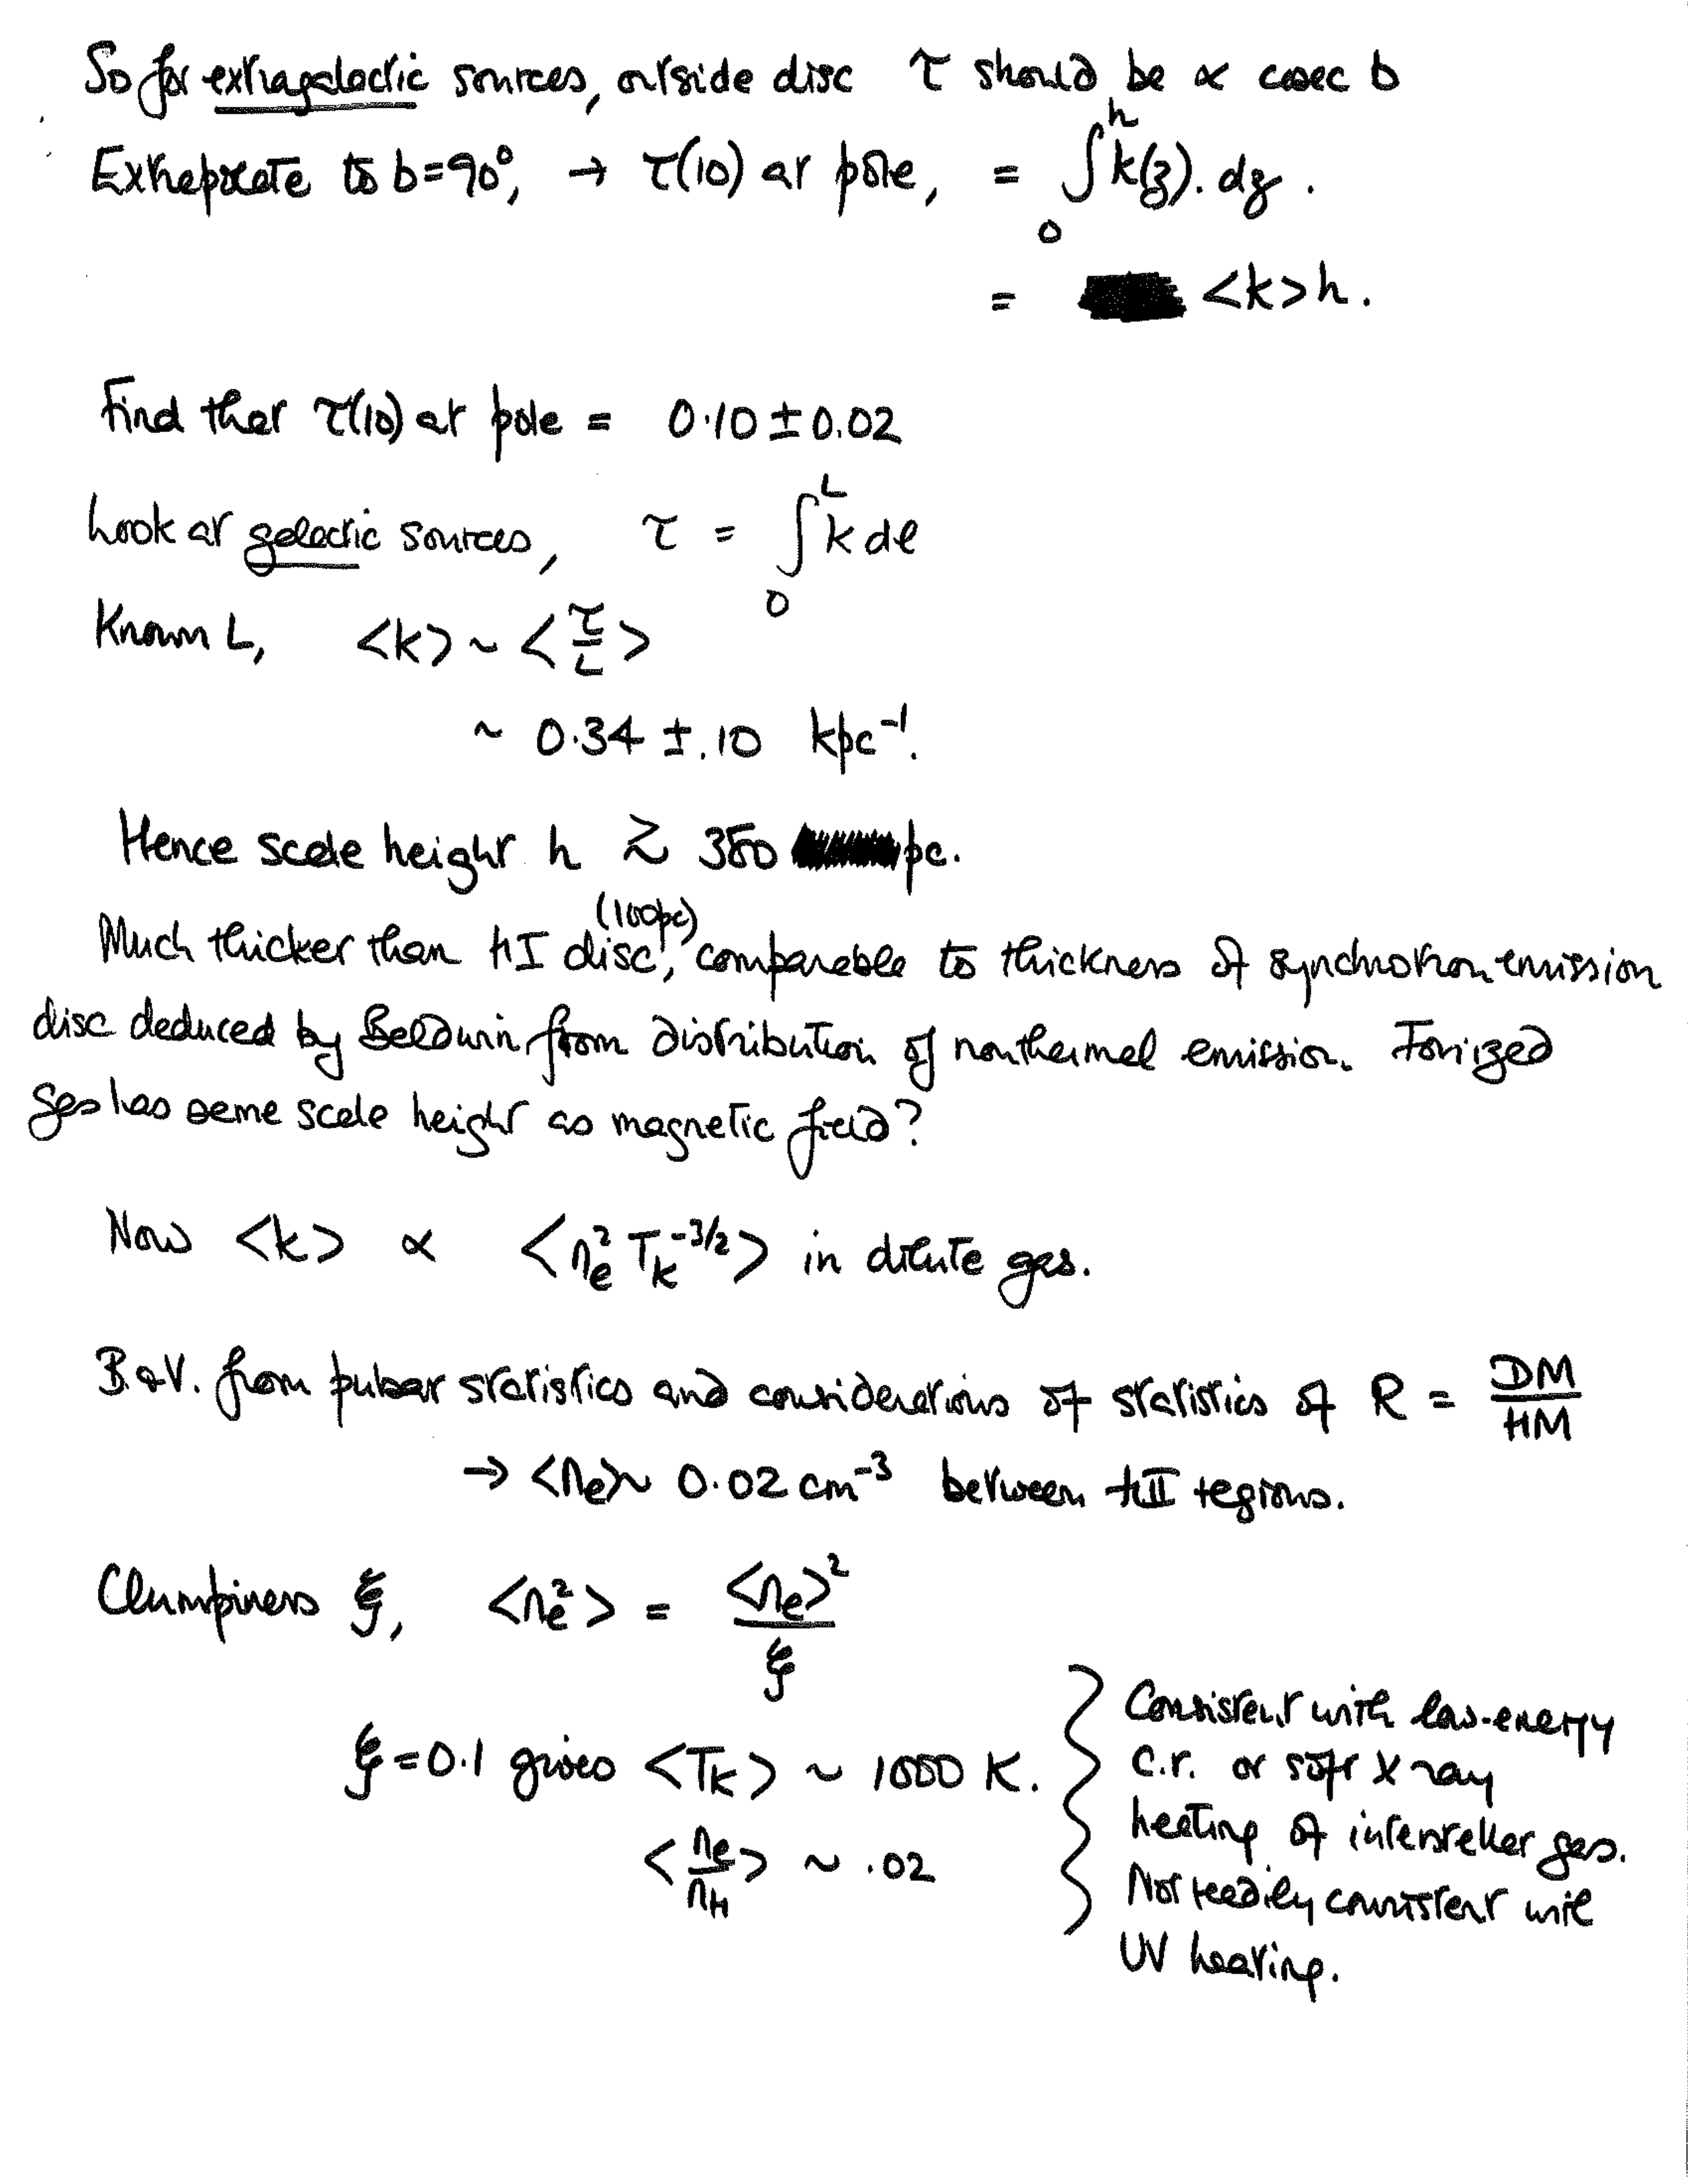 So for extragalactic sources, outside disc τ should be ∝ cosec b
Extrapolate to b=90°, → τ(10) at pole, = ∫₀ʰ k(z). dz.
= <k>h.
Find that τ(10) at pole = 0.10 ± 0.02
Look at galactic sources, τ = ∫₀ᴸ k dl
Known L, <k> ~ <τ/L>
~ 0.34 ± .10 kpc⁻¹.
Hence scale height h ≳ 380 pc.
(100pc)
Much thicker than HI disc, comparable to thickness of synchrotron emission
disc deduced by Baldwin from distribution of nonthermal emission. Ionized
gas has same scale height as magnetic field?
Now <k> ∝ <nₑ² T_k^(-3/2)> in dilute gas.
B & V. from pulsar statistics and considerations of statistics of R = DM/HM
→ <nₑ> ~ 0.02 cm⁻³ between HII regions.
Clumpiness ξ, <nₑ²> = <nₑ>²/ξ
ξ = 0.1 gives <T_k> ~ 1000 K.
<nₑ/n_H> ~ .02
Consistent with low-energy
c.r. or soft X ray
heating of interstellar gas.
Not readily consistent with
UV heating.